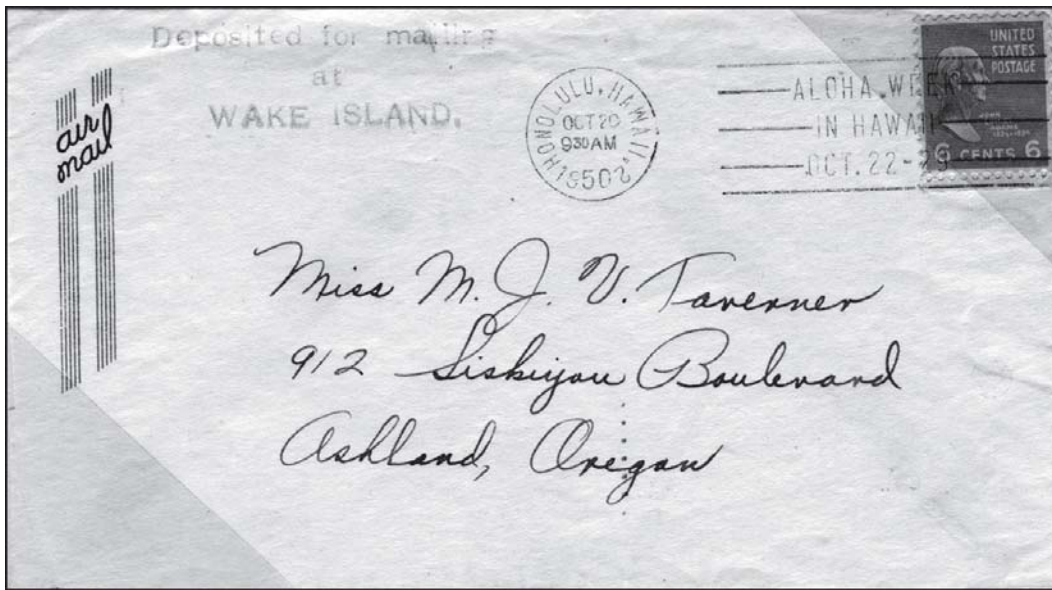 Deposited for mailing
at
WAKE ISLAND.
air
mail
HONOLULU, HAWAII. 2
OCT 20
9 30 AM
1950
ALOHA WEEK
IN HAWAII
OCT. 22-29
UNITED
STATES
POSTAGE
JOHN
ADAMS
6 CENTS 6
Miss M. J. V. Taverner
912 Siskiyou Boulevard
Ashland, Oregon